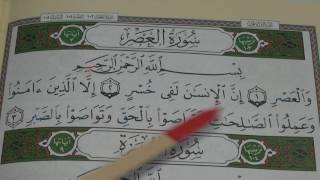 سُورَةُ الْعَصْرِ
بِسْمِ اللَّهِ الرَّحْمَٰنِ الرَّحِيمِ
وَالْعَصْرِ ١ إِنَّ الْإِنسَانَ لَفِي خُسْرٍ ٢ إِلَّا الَّذِينَ ءَامَنُوا
وَعَمِلُوا الصَّالِحَاتِ وَتَوَاصَوْا بِالْحَقِّ وَتَوَاصَوْا بِالصَّبْرِ ٣
سُورَةُ الْهُمَزَةِ